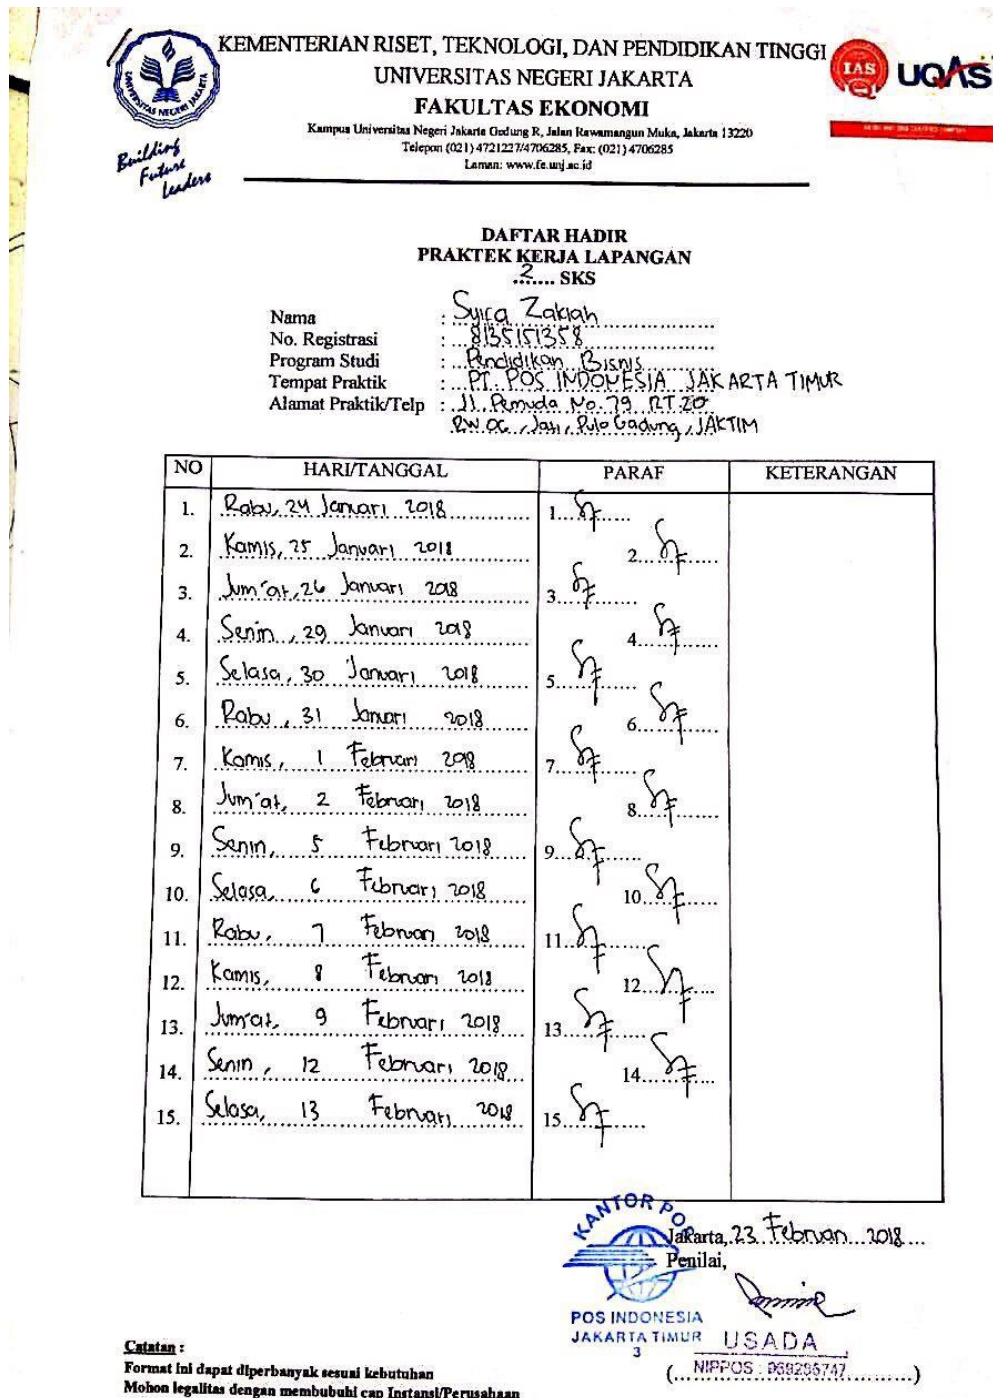 KEMENTERIAN RISET, TEKNOLOGI, DAN PENDIDIKAN TINGGI
UNIVERSITAS NEGERI JAKARTA
FAKULTAS EKONOMI
Kampus Universitas Negeri Jakarta Gedung R, Jalan Rawamangun Muka, Jakarta 13220
Telepon (021) 4721227/4706285, Fax: (021) 4706285
Laman: www.fe.unj.ac.id
UNIVERSITAS NEGERI JAKARTA
Building
Future
Leaders
IAS
UQAS
DAFTAR HADIR
PRAKTEK KERJA LAPANGAN
2 SKS
Nama : Syira Zakiah
No. Registrasi : 8135151358
Program Studi : Pendidikan Bisnis
Tempat Praktik : PT. POS INDONESIA JAKARTA TIMUR
Alamat Praktik/Telp : Jl. Pemuda No. 79 RT.20
RW.06, Jati, Pulo Gadung, JAKTIM
NO HARI/TANGGAL PARAF KETERANGAN
1. Rabu, 24 Januari 2018 1.
2. Kamis, 25 Januari 2018 2.
3. Jum'at, 26 Januari 2018 3.
4. Senin, 29 Januari 2018 4.
5. Selasa, 30 Januari 2018 5.
6. Rabu, 31 Januari 2018 6.
7. Kamis, 1 Februari 2018 7.
8. Jum'at, 2 Februari 2018 8.
9. Senin, 5 Februari 2018 9.
10. Selasa, 6 Februari 2018 10.
11. Rabu, 7 Februari 2018 11.
12. Kamis, 8 Februari 2018 12.
13. Jum'at, 9 Februari 2018 13.
14. Senin, 12 Februari 2018 14.
15. Selasa, 13 Februari 2018 15.
KANTOR POS
Jakarta, 23 Februari 2018
Penilai,
POS INDONESIA
JAKARTA TIMUR
3
USADA
(NIPPOS : 969295747)
Catatan :
Format ini dapat diperbanyak sesuai kebutuhan
Mohon legalitas dengan membubuhi cap Instansi/Perusahaan